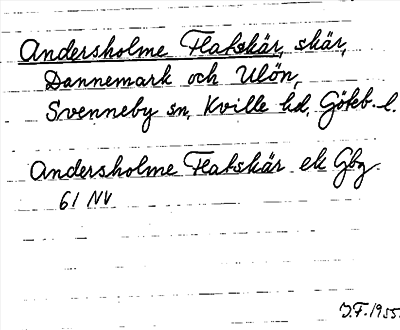 Andersholme Flatskär, skär,
Dannemark och Ulön,
Svenneby sn, Kville hd, Göteb. l.
Andersholme Flatskär ek Gbg.
61 NV
J.F. 1955.